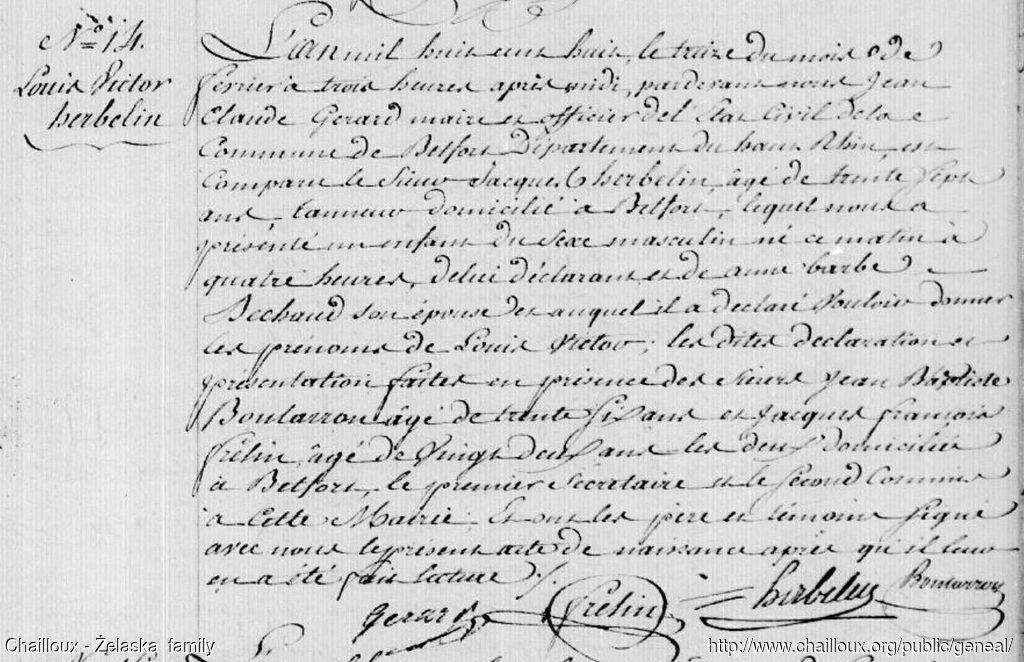 N° 14.
Louis Victor
herbelin
L'an mil huit cent huit, le treize du mois de
fevrier à trois heures après midi, pardevant nous Jean
Claude Gerard maire et officier de l'Etat Civil de la
Commune de Belfort Département du haut Rhin, est
Comparu le Sieur Jacques herbelin, âgé de trente Sept
ans, tanneur domicilié à Belfort, lequel nous a
présenté un enfant du Sexe masculin né ce matin à
quatre heures, de lui déclarant et de anne barbe
Bechaud son épouse et auquel il a declaré Vouloir donner
les prénoms de Louis Victor; les dites declaration et
présentation faites en présence des Sieurs Jean Baptiste
Boutarron âgé de trente six ans et Jacques françois
frélin, âgé de Vingt deux ans les deux domiciliés
à Belfort, le premier Sécrétaire et le Second Commis
à Cette Mairie. Et ont les pere et témoins Signé
avec nous le présent acte de naissance après qu'il leur
en a été fait lecture ./.
Gerard frélin herbelin Boutarron
Chailloux - Żelaska family
http://www.chailloux.org/public/geneal/